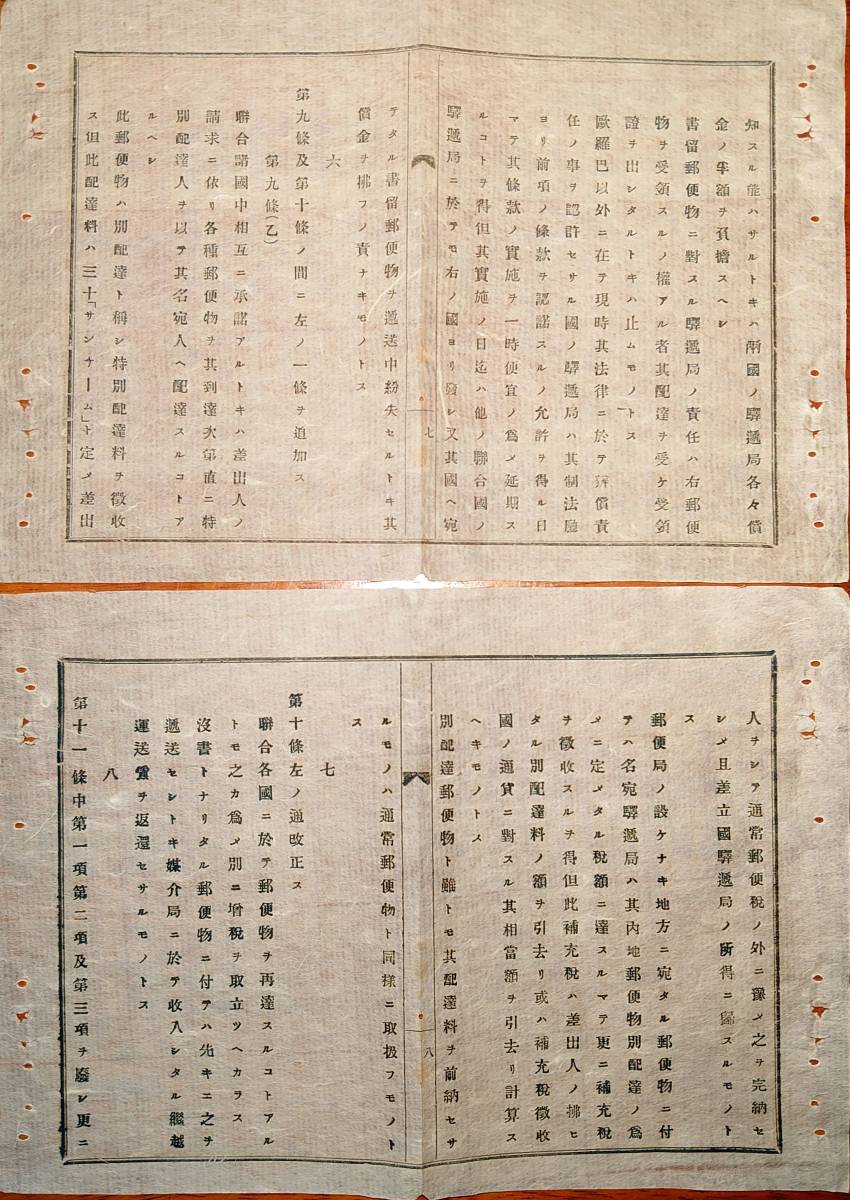 知スル能ハサルトキハ兩國ノ驛遞局各々償
金ノ半額ヲ負擔スヘシ
書留郵便物ニ對スル驛遞局ノ責任ハ右郵便
物ヲ受領スルノ權アル者其配達ヲ受ケ受領
證ヲ出シタルトキハ止ムモノトス
歐羅巴以外ニ在テ現時其法律ニ於テ辨償責
任ノ事ヲ認許セサル國ノ驛遞局ハ其制法廳
ヨリ前項ノ條款ヲ認諾スルノ允許ヲ得ル日
マテ其條款ノ實施ヲ一時便宜ノ爲メ延期ス
ルコトヲ得但其實施ノ日迄ハ他ノ聯合國ノ
驛遞局ニ於テモ右ノ國ヨリ發シ又其國ヘ宛
七
テタル書留郵便物ヲ遞送中紛失セルトキ其
償金ヲ拂フノ責ナキモノトス
六
第九條及第十條ノ間ニ左ノ一條ヲ追加ス
第九條(乙)
聯合諸國中相互ニ承諾アルトキハ差出人ノ
請求ニ依リ各種郵便物ヲ其到達次第直ニ特
別配達人ヲ以テ其名宛人ヘ配達スルコトア
ルヘシ
此郵便物ハ別配達ト稱シ特別配達料ヲ徴收
ス但此配達料ハ三十「サンチーム」ト定メ差出
人ヲシテ通常郵便税ノ外ニ豫メ之ヲ完納セ
シメ且差立國驛遞局ノ所得ニ歸スルモノト
ス
郵便局ノ設ケナキ地方ニ宛タル郵便物ニ付
テハ名宛驛遞局ハ其内地郵便物別配達ノ爲
メニ定メタル税額ニ達スルマテ更ニ補充税
ヲ徴收スルヲ得但此補充税ハ差出人ノ拂ヒ
タル別配達料ノ額ヲ引去リ或ハ補充税徴收
國ノ通貨ニ對スル其相當額ヲ引去リ計算ス
ヘキモノトス
別配達郵便物ト雖トモ其配達料ヲ前納セサ
八
ルモノハ通常郵便物ト同樣ニ取扱フモノト
ス
七
第十條左ノ通改正ス
聯合各國ニ於テ郵便物ヲ再達スルコトアル
トモ之カ爲メ別ニ增税ヲ取立ツヘカラス
沒書トナリタル郵便物ニ付テハ先キニ之ヲ
遞送セシトキ媒介局ニ於テ收入シタル繼越
運送賃ヲ返還セサルモノトス
八
第十一條中第一項第二項及第三項ヲ廢シ更ニ